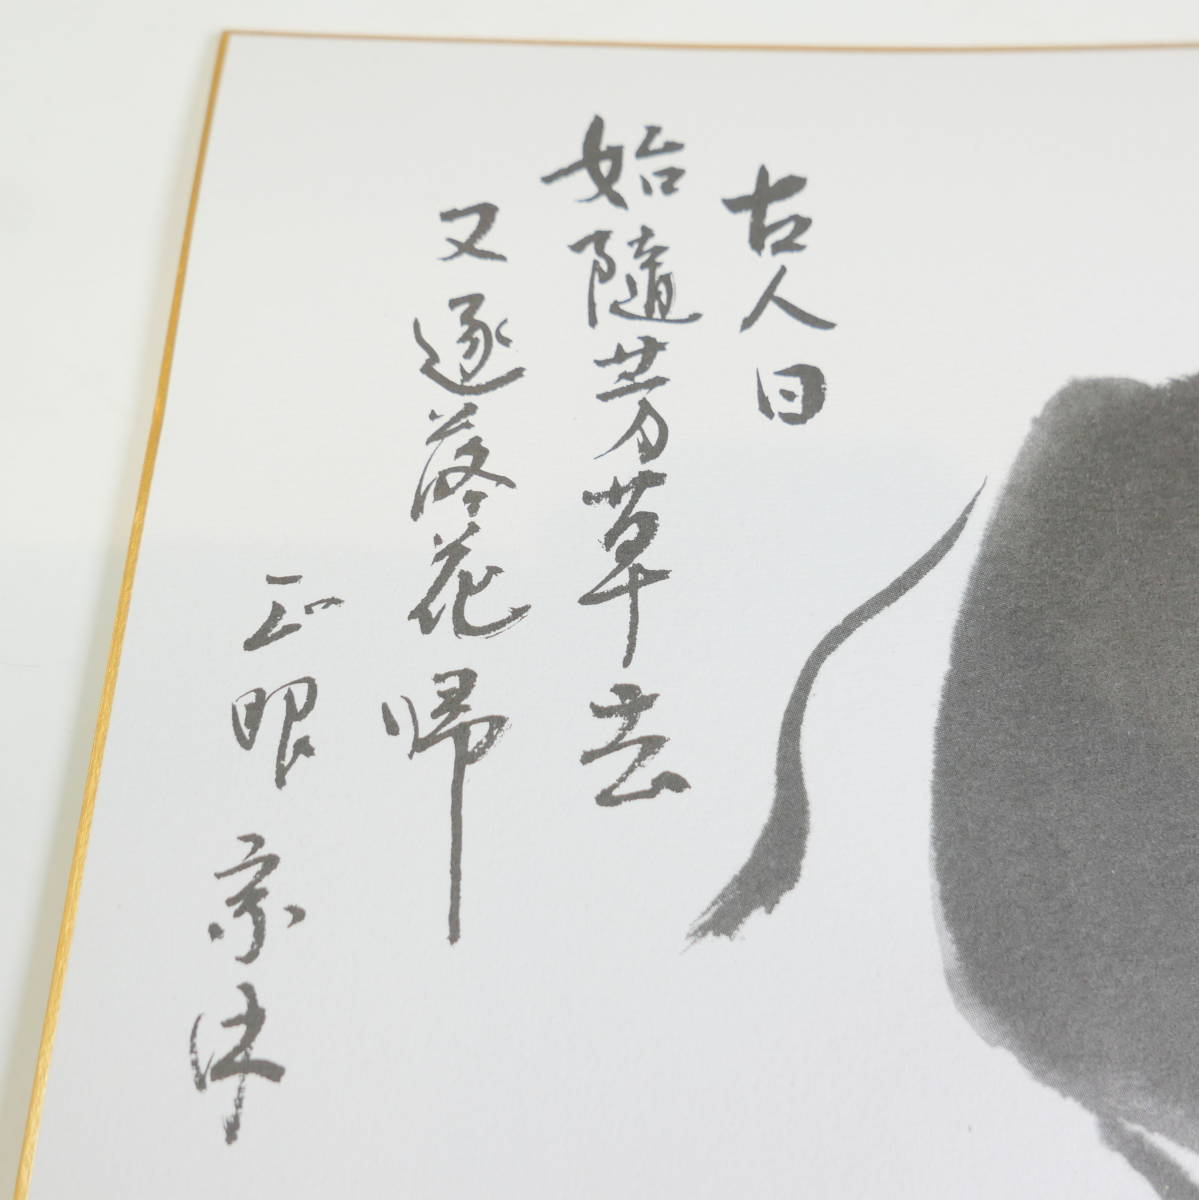 古人曰
始隨芳草去
又逐落花帰
正眼宗休